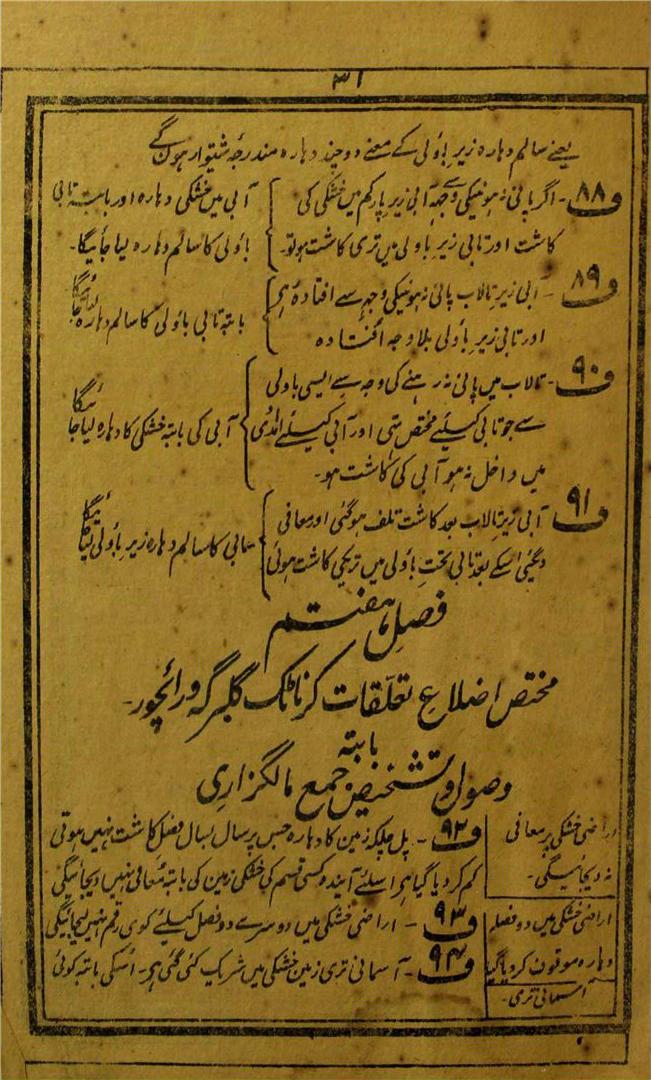 ۳۱
یعنے سالم دہارہ زیر باؤلی کے معنے دوچند دہارہ مندرجہ شیتوار ہونگے
ف۸۸ - اگر پانی نہ ہونیکی وجہ سے آبی زیر پارکم میں خشکی کی
کاشت اور تابی زیر باولی میں تری کاشت ہو تو۔
آبی میں خشکی دہارہ اور بابتہ تابی
باؤلی کا سالم دہارہ لیا جائیگا۔
ف۸۹ - آبی زیر تالاب پانی نہ ہونیکی وجہ سے افتادہ ہی
اور تابی زیر باؤلی بلا وجہ افتادہ
بابتہ تابی باؤلی کا سالم دہارہ لیا جائیگا
ف۹۰ - تالاب میں پانی نہ رہنے کی وجہ سے ایسی باولی
سے جو تابی کیلئے مختص تہی اور آبی کیلئے
میں داخل نہ ہو آبی کی کاشت ہو۔
آبی کی بابتہ خشکی کا دہارہ لیا جائیگا
ف۹۱ آبی زیر تالاب بعد کاشت تلف ہوگئی اور معافی
دیگئی اسکے بعد تابی تحت باؤلی میں تریکی کاشت ہوئی
تابی کا سالم دہارہ زیر باؤلی لیا جائیگا
فصلِ ہفتم
مختص اضلاع تعلّقات کرناٹک گلبرگہ ورائچور۔
بابتہ
وصول و تشخیص جمع مالگزاری
اراضی خشکی پر معافی
نہ دیجائیگی۔
ف۹۲ - زمین کا دہارہ جس پر سال بسال فصل کاشت نہیں ہوتی
کم کردیا گیا ہی اسلئے آیندہ کسی قسم کی خشکی زمین کی بابتہ معافی نہیں دیجائیگی
اراضی خشکی میں دو فصلہ
دہارہ موقوف کردیا گیا
ف۹۳ - اراضی خشکی میں دوسرے دو فصل کیلئے کوی رقم نہیں لیجائیگی
آسمانی تری۔
ف۹۴ - آسمانی تری زمین خشکی میں شریک کی گئی ہی۔ اسکی بابتہ کوئی